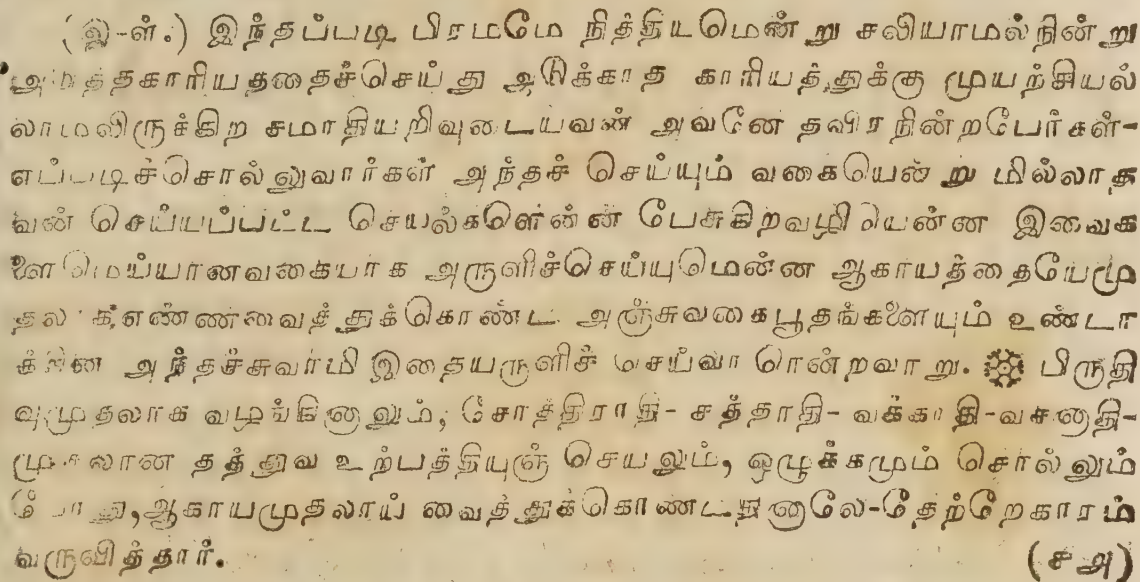 (இ-ள்.) இந்தப்படி பிரமமே நித்தியமென்று சலியாமல்நின்று
அடுத்தகாரியத்தைச்செய்து அடுக்காத காரியத்துக்கு முயற்சியல்
லாமலிருக்கிற சமாதியறிவுடையவன் அவனே தவிரநின்றபேர்கள்-
எப்படிச்சொல்லுவார்கள் அந்தச் செய்யும் வகையென்று மில்லாத
வன் செய்யப்பட்ட செயல்களென்ன பேசுகிறவழி யென்ன இவைக
ளை மெய்யானவகையாக அருளிச்செய்யுமென்ன ஆகாயத்தையேமு
தலாக எண்ணவைத்துக்கொண்ட அஞ்சுவகைபூதங்களையும் உண்டா
க்கின அந்தச்சுவாமி இதையருளிச் செய்வா ரென்றவாறு. பிருதி
வுமுதலாக வழங்கினாலும், சோத்திராதி- சத்தாதி- வக்காதி-வசனாதி-
முதலான தத்துவ உற்பத்தியுஞ் செயலும், ஒழுக்கமும் சொல்லும்
போது,ஆகாயமுதலாய் வைத்துக்கொண்டதனாலே-தேற்றேகாரம்
வருவித்தார். (சஅ)